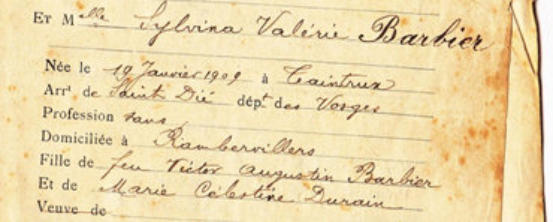 ET Melle Sylvina Valérie Barbier
Née le 19 Janvier 1909 à Taintrux
Arrt de Saint Dié dépt des Vosges
Profession sans
Domiciliée à Rambervillers
Fille de feu Victor Augustin Barbier
Et de Marie Célestine Durain
Veuve de